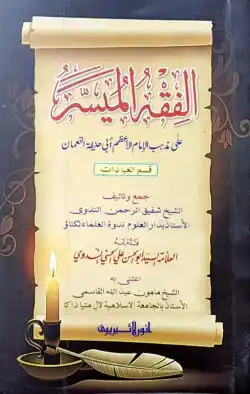 الفقه الميسر
على مذهب الإمام الأعظم أبي حنيفة النعمان
قسم العبادات
جمع وتاليف
الشيخ شفيق الرحمن الندوي
الأستاذ بدار العلوم ندوة العلماء لكناؤ
قدم له
العلامة السيد ابو الحسن علي الحسني الندوي
اعتنى به
الشيخ مامون عبد الله القاسمي
الأستاذ بالجامعة الاسلامية لال متيا داكا
انور لائبريرى